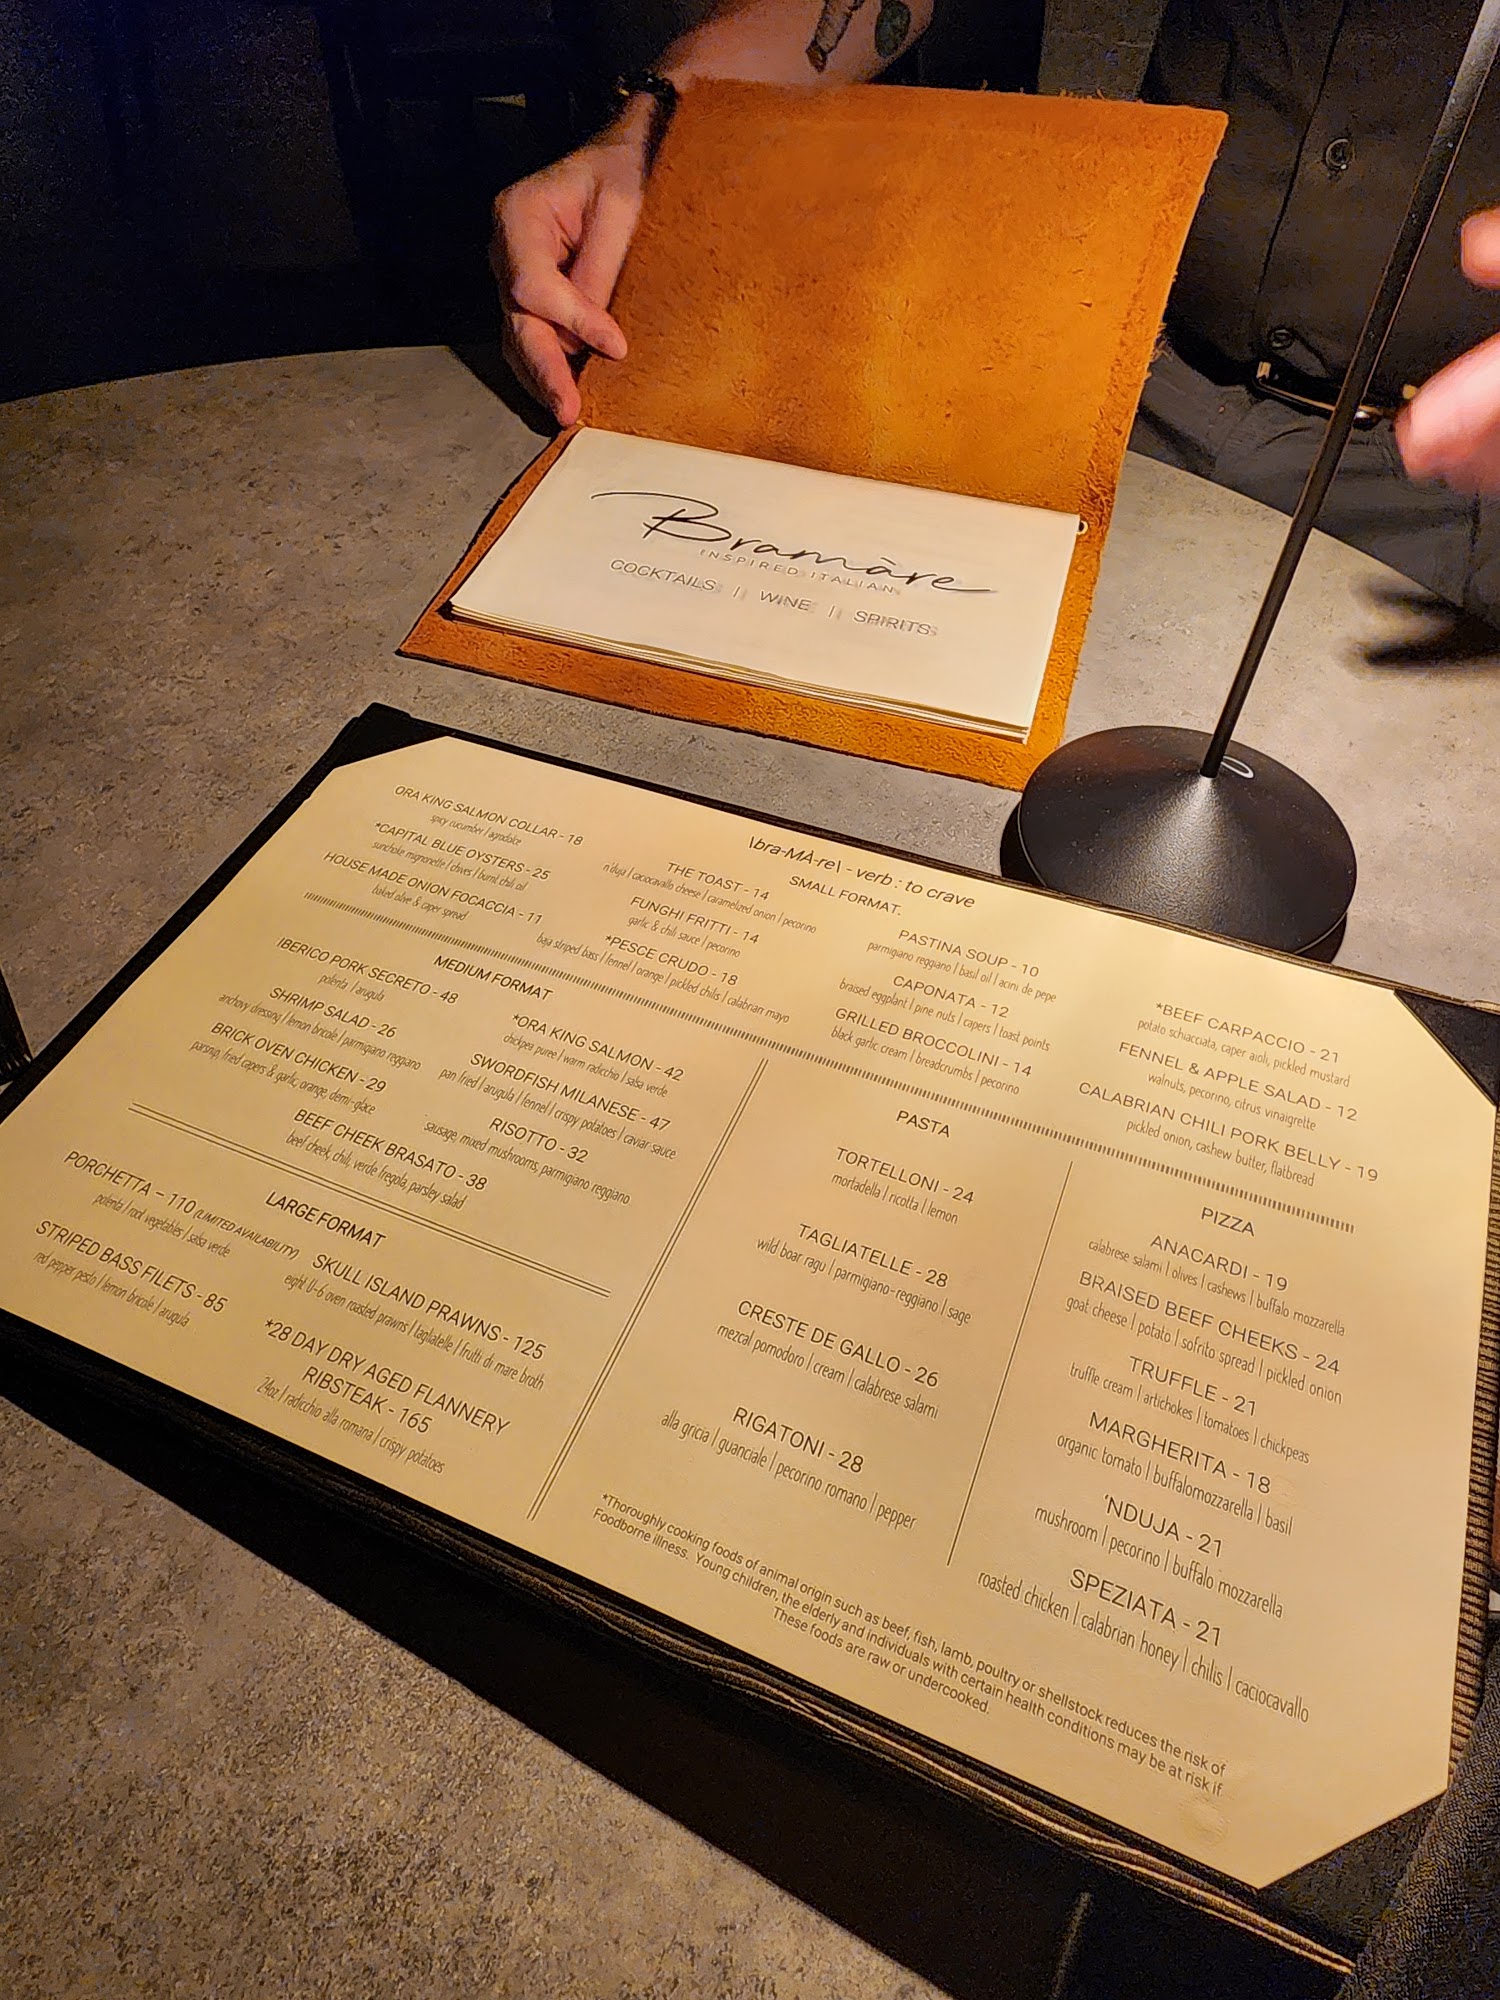 Bramàre
INSPIRED ITALIAN
COCKTAILS || WINE || SPIRITS
\bra-MÀ-re\ - verb : to crave
SMALL FORMAT.
ORA KING SALMON COLLAR - 18
spicy cucumber | agrodolce
*CAPITAL BLUE OYSTERS - 25
sunchoke mignonette | chives | burnt chili oil
HOUSE MADE ONION FOCACCIA - 11
baked olive & caper spread
THE TOAST - 14
n'duja | caciocavallo cheese | caramelized onion | pecorino
FUNGHI FRITTI - 14
garlic & chili sauce | pecorino
*PESCE CRUDO - 18
baja striped bass | fennel | orange | pickled chilis | calabrian mayo
PASTINA SOUP - 10
parmigiano reggiano | basil oil | acini de pepe
CAPONATA - 12
braised eggplant | pine nuts | capers | toast points
GRILLED BROCCOLINI - 14
black garlic cream | breadcrumbs | pecorino
*BEEF CARPACCIO - 21
potato schiacciata, caper aioli, pickled mustard
FENNEL & APPLE SALAD - 12
walnuts, pecorino, citrus vinaigrette
CALABRIAN CHILI PORK BELLY - 19
pickled onion, cashew butter, flatbread
MEDIUM FORMAT
IBERICO PORK SECRETO - 48
polenta | arugula
SHRIMP SALAD - 26
anchovy dressing | lemon bricole | parmigiano reggiano
BRICK OVEN CHICKEN - 29
parsnip, fried capers & garlic, orange, demi-glace
*ORA KING SALMON - 42
chickpea puree | warm radicchio | salsa verde
SWORDFISH MILANESE - 47
pan fried | arugula | fennel | crispy potatoes | caviar sauce
RISOTTO - 32
sausage, mixed mushrooms, parmigiano reggiano
BEEF CHEEK BRASATO - 38
beef cheek, chili, verde fregola, parsley salad
LARGE FORMAT
PORCHETTA – 110 (LIMITED AVAILABILITY)
polenta | root vegetables | salsa verde
STRIPED BASS FILETS - 85
red pepper pesto | lemon bricole | arugula
SKULL ISLAND PRAWNS - 125
eight U-6 oven roasted prawns | tagliatelle | frutti di mare broth
*28 DAY DRY AGED FLANNERY
RIBSTEAK - 165
24oz | radicchio alla romana | crispy potatoes
PASTA
TORTELLONI - 24
mortadella | ricotta | lemon
TAGLIATELLE - 28
wild boar ragu | parmigiano-reggiano | sage
CRESTE DE GALLO - 26
mezcal pomodoro | cream | calabrese salami
RIGATONI - 28
alla gricia | guanciale | pecorino romano | pepper
PIZZA
ANACARDI - 19
calabrese salami | olives | cashews | buffalo mozzarella
BRAISED BEEF CHEEKS - 24
goat cheese | potato | sofrito spread | pickled onion
TRUFFLE - 21
truffle cream | artichokes | tomatoes | chickpeas
MARGHERITA - 18
organic tomato | buffalomozzarella | basil
'NDUJA - 21
mushroom | pecorino | buffalo mozzarella
SPEZIATA - 21
roasted chicken | calabrian honey | chilis | caciocavallo
*Thoroughly cooking foods of animal origin such as beef, fish, lamb, poultry or shellstock reduces the risk of
Foodborne illness. Young children, the elderly and individuals with certain health conditions may be at risk if
These foods are raw or undercooked.